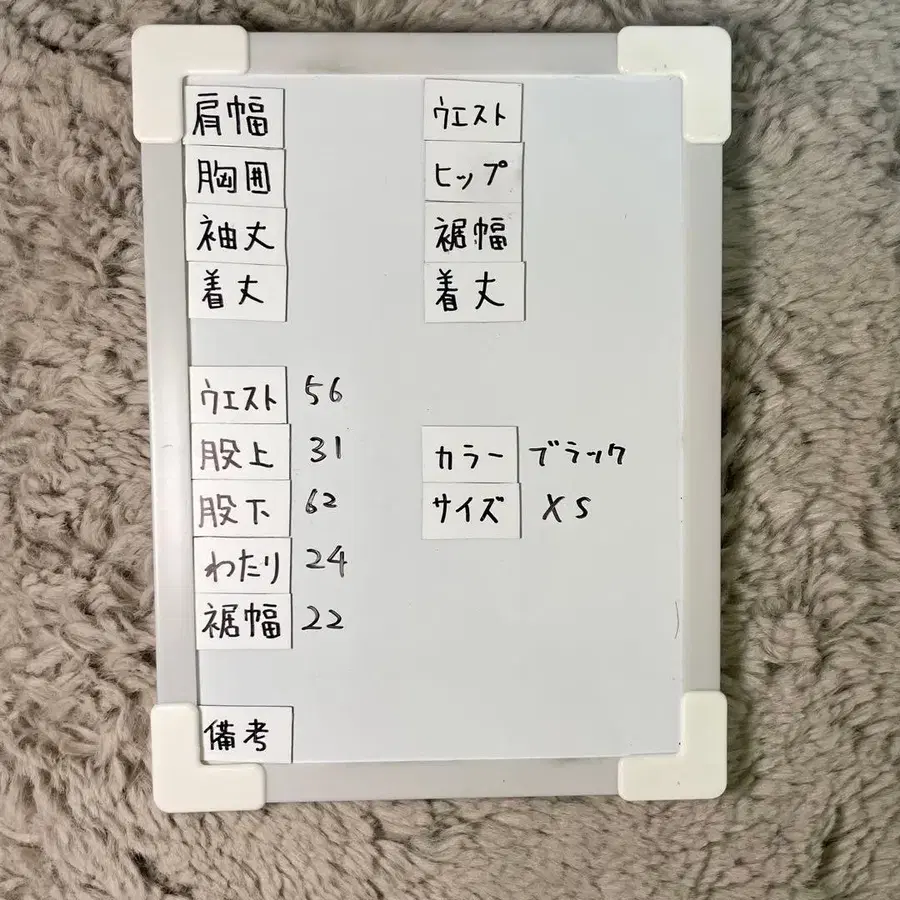 肩幅
胸囲
袖丈
着丈
ウエスト
ヒップ
裾幅
着丈
ウエスト 56
股上 31
股下 62
わたり 24
裾幅 22
カラー ブラック
サイズ XS
備考